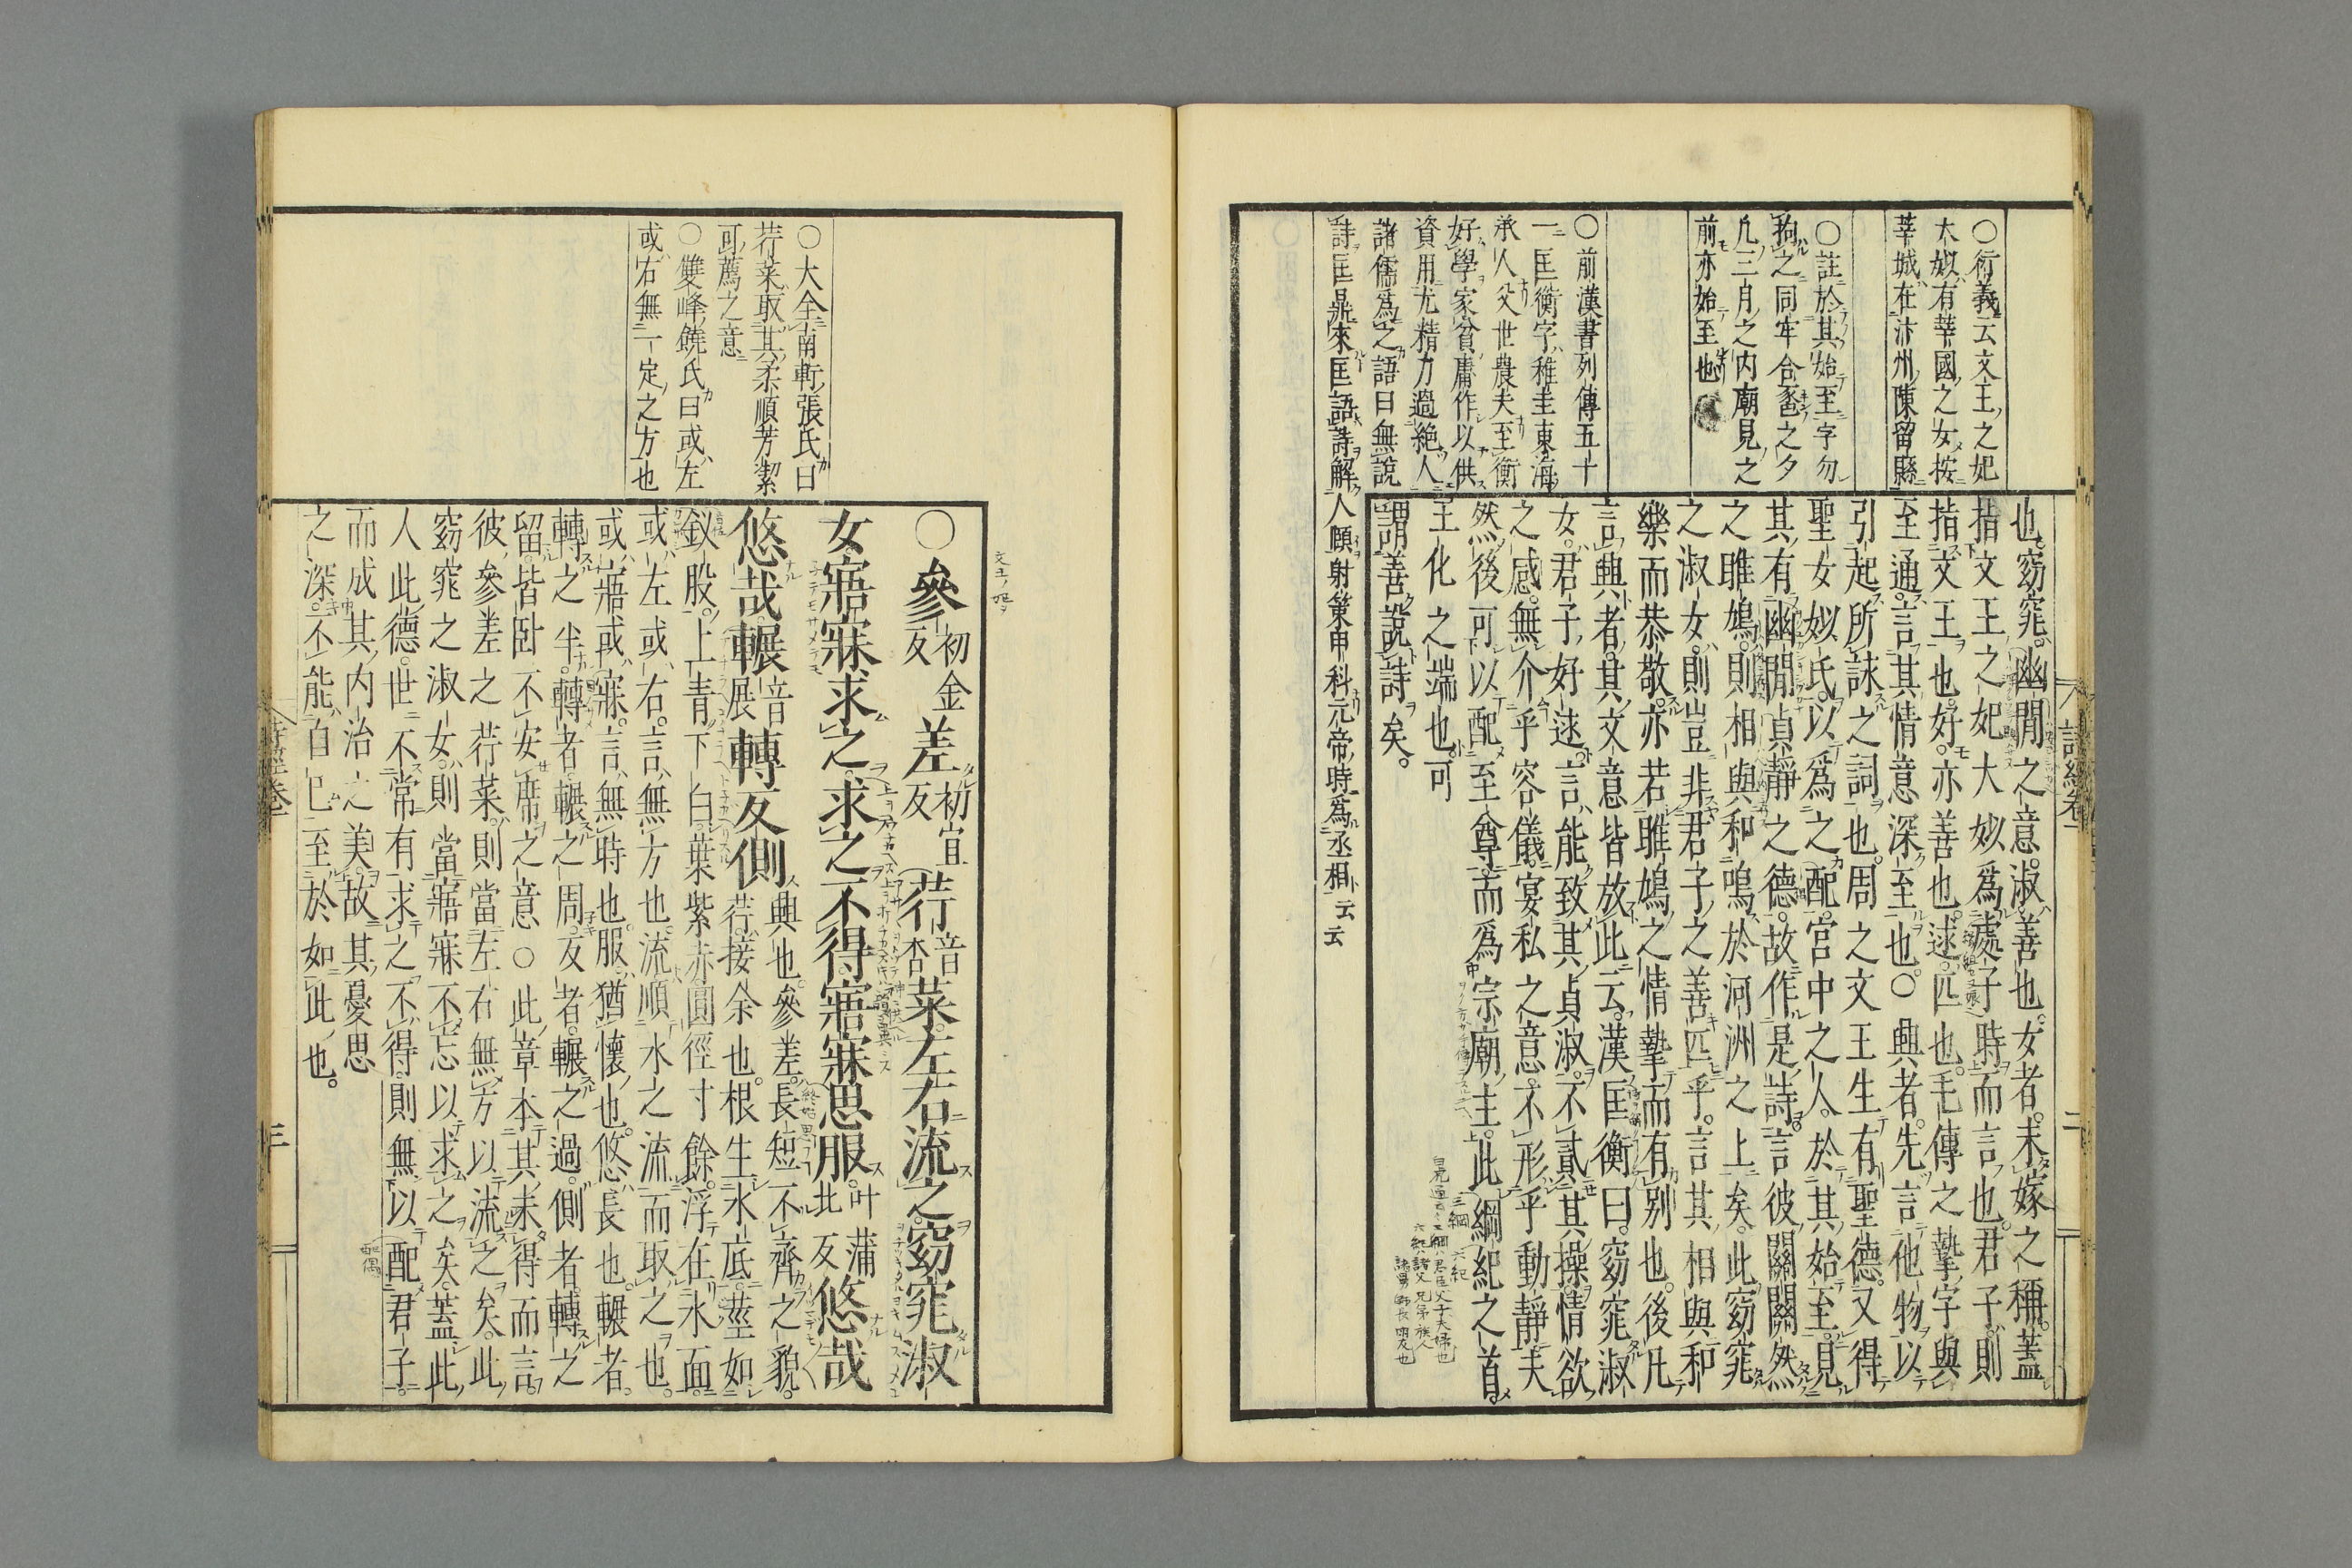 ○衍義云文王之妃
太姒有莘國之女按
莘城在汴州陳留縣
○註於其始至字勿
拘之同牢合卺之夕
凡三月之内廟見之
前亦始至也
○前漢書列傳五十
一匡衡字稚圭東海
承人父世農夫至衡
好學家貧庸作以供
資用尤精力過絶人
諸儒爲之語曰無說
詩匡鼎來匡語詩解人頤射策甲科元帝時爲丞相云云
也窈窕幽閒之意淑善也女者未嫁之稱蓋
指文王之妃大姒爲處子時而言也君子則
指文王也好亦善也逑匹也毛傳之摯字與
至通言其情意深至也○興者先言他物以
引起所詠之詞也周之文王生有聖德又得
聖女姒氏以爲之配宮中之人於其始至見
其有幽閒貞靜之德故作是詩言彼關關然
之雎鳩則相與和鳴於河洲之上矣此窈窕
之淑女則豈非君子之善匹乎言其相與和
樂而恭敬亦若雎鳩之情摯而有別也後凡
言興者其文意皆放此云漢匡衡曰窈窕淑
女君子好逑言能致其貞淑不貳其操情欲
之感無介乎容儀宴私之意不形乎動靜夫
然後可以配至尊而爲宗廟主此綱紀之首
王化之端也可
謂善說詩矣
詩經卷一
二
○大全南軒張氏曰
荇菜取其柔順芳潔
可薦之意
○雙峰饒氏曰或左
或右無一定之方也
○參初金反差初宜反荇音杏菜左右流之窈窕淑
女寤寐求之求之不得寤寐思服叶蒲北反悠哉
悠哉輾音展轉反側興也參差長短不齊之貌
荇接余也根生水底莖如
釵股上青下白葉紫赤圓徑寸餘浮在水面
或左或右言無方也流順水之流而取之也
或寤或寐言無時也服猶懷也悠長也輾者
轉之半轉者輾之周反者輾之過側者轉之
留皆臥不安席之意○此章本其未得而言
彼參差之荇菜則當左右無方以流之矣此
窈窕之淑女則當寤寐不忘以求之矣蓋此
人此德世不常有求之不得則無以配君子
而成其内治之美故其憂思
之深不能自已至於如此也
三